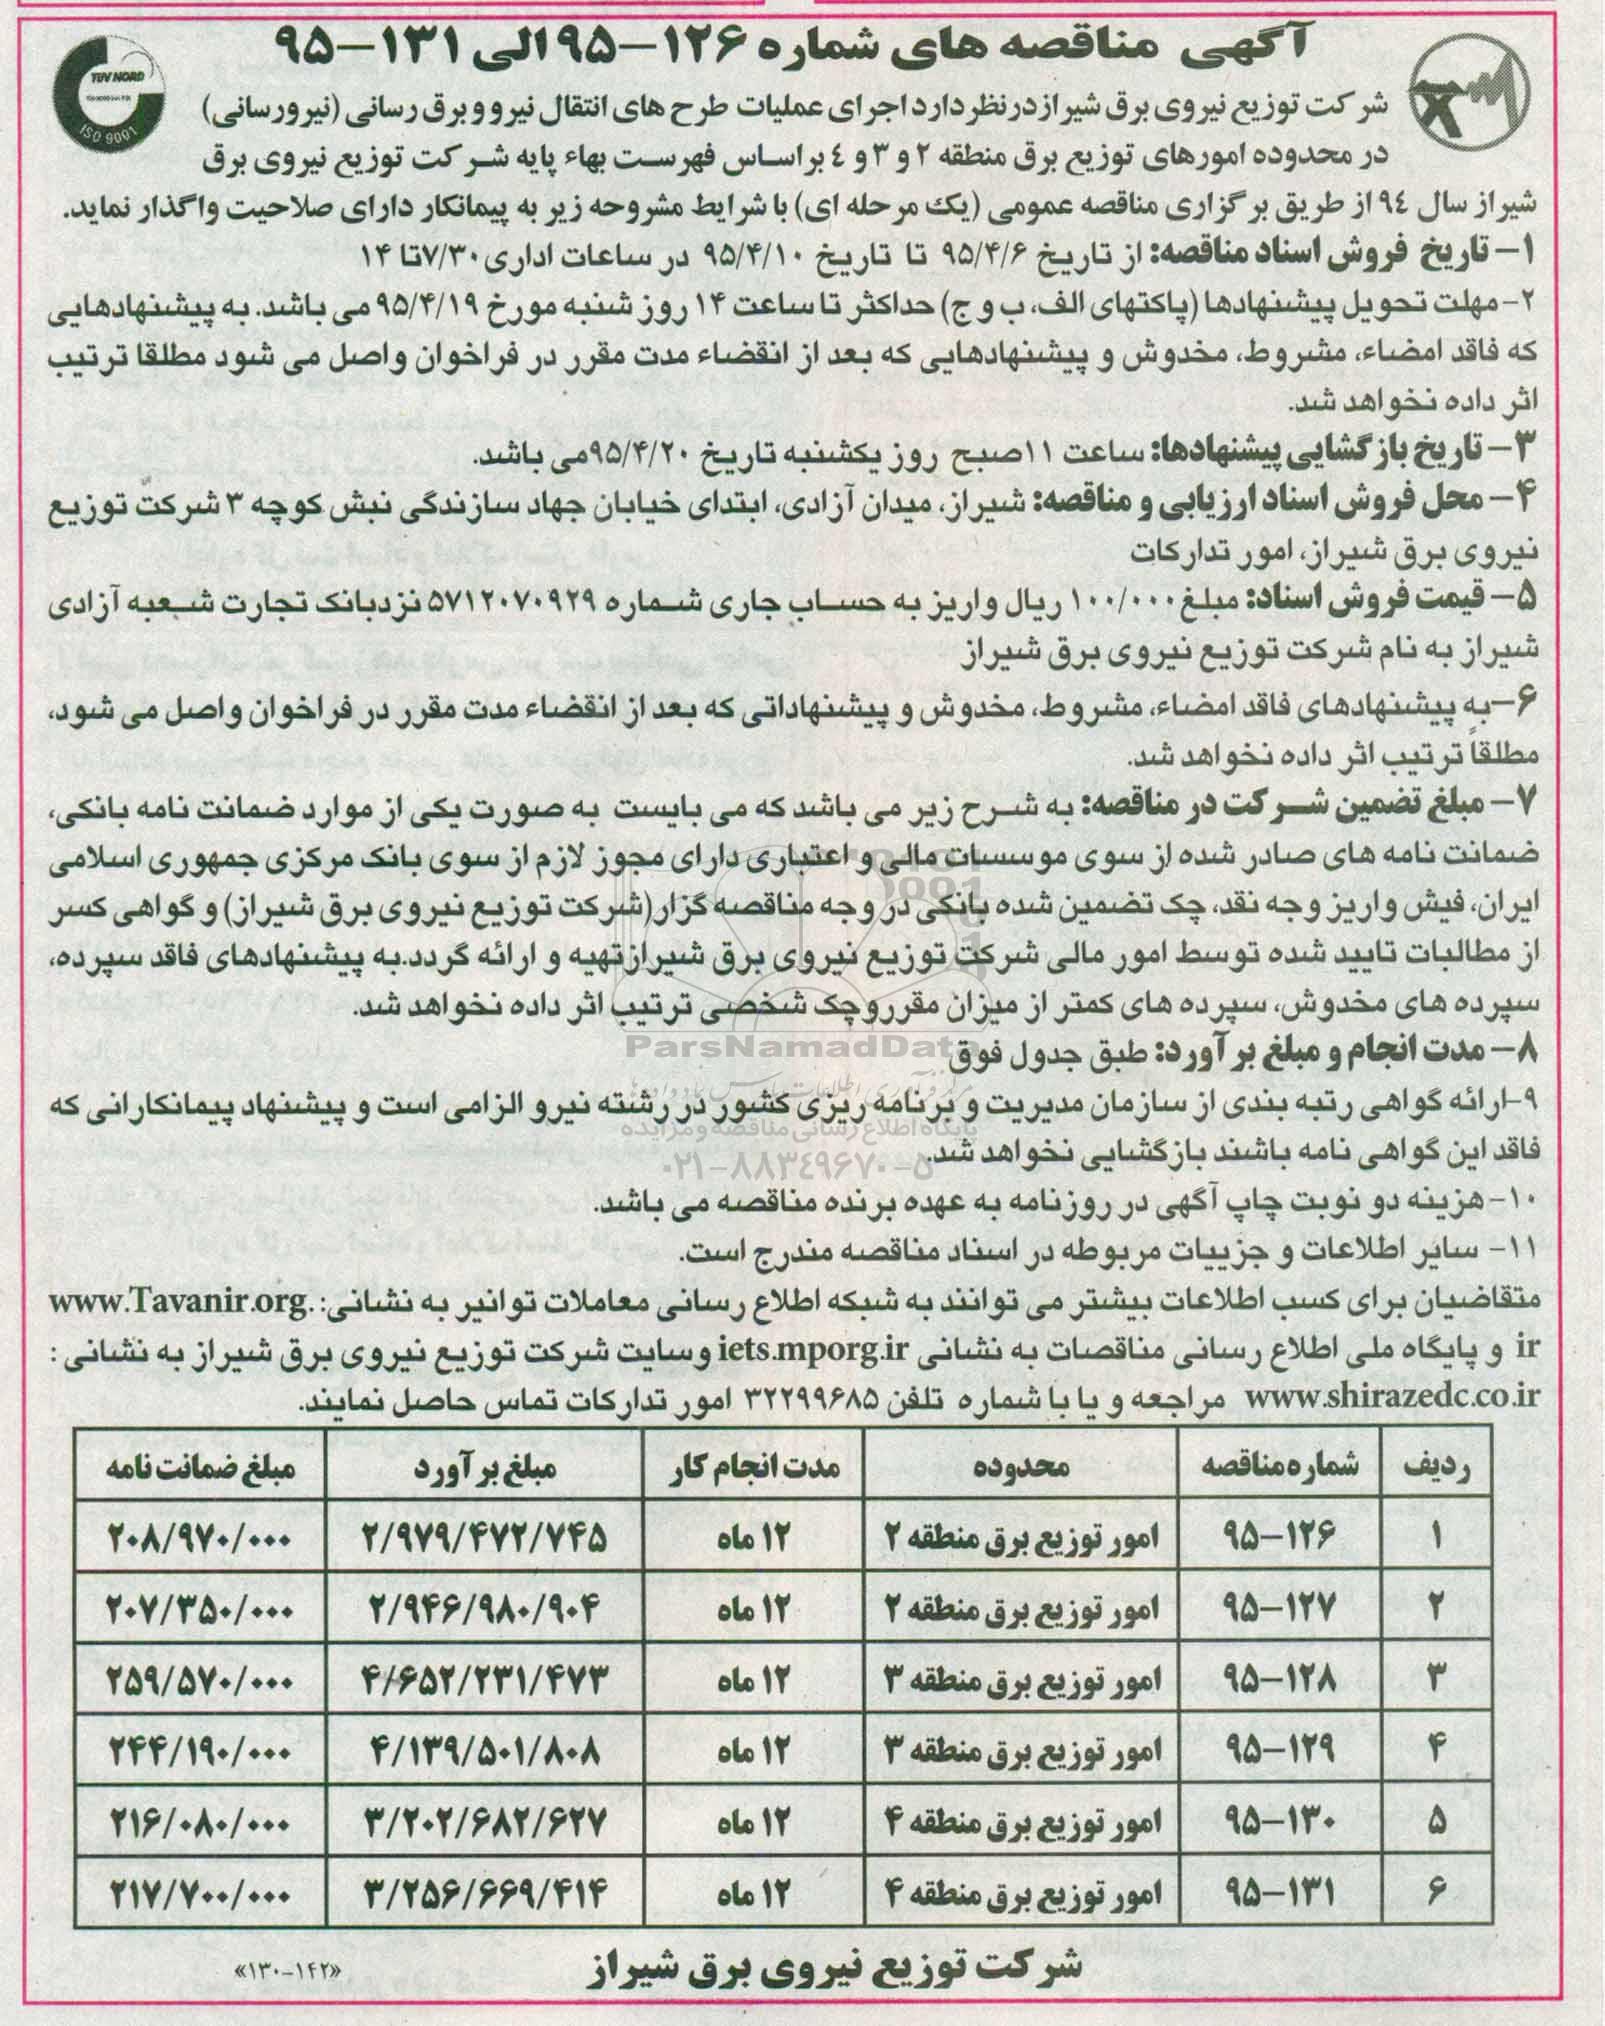 آگهی مناقصه های شماره ۱۲۶-۹۵ الی ۱۳۱-۹۵
TUV NORD
ISO 9001
شرکت توزیع نیروی برق شیراز در نظر دارد اجرای عملیات طرح های انتقال نیرو و برق رسانی (نیرورسانی)
در محدوده امورهای توزیع برق منطقه ۲ و ۳ و ٤ براساس فهرست بهاء پایه شرکت توزیع نیروی برق
شیراز سال ۹٤ از طریق برگزاری مناقصه عمومی (یک مرحله ای) با شرایط مشروحه زیر به پیمانکار دارای صلاحیت واگذار نماید.
۱- تاریخ فروش اسناد مناقصه: از تاریخ ۹۵/۴/۶ تا تاریخ ۹۵/۴/۱۰ در ساعات اداری ۷/۳۰ تا ۱۴
۲- مهلت تحویل پیشنهادها (پاکتهای الف، ب و ج) حداکثر تا ساعت ۱۴ روز شنبه مورخ ۹۵/۴/۱۹ می باشد. به پیشنهادهایی
که فاقد امضاء، مشروط، مخدوش و پیشنهادهایی که بعد از انقضاء مدت مقرر در فراخوان واصل می شود مطلقا ترتیب
اثر داده نخواهد شد.
۳- تاریخ بازگشایی پیشنهادها: ساعت ۱۱صبح روز یکشنبه تاریخ ۹۵/۴/۲۰می باشد.
۴- محل فروش اسناد ارزیابی و مناقصه: شیراز، میدان آزادی، ابتدای خیابان جهاد سازندگی نبش کوچه ۳ شرکت توزیع
نیروی برق شیراز، امور تدارکات
۵- قیمت فروش اسناد: مبلغ ۱۰۰/۰۰۰ ریال واریز به حساب جاری شماره ۵۷۱۲۰۷۰۹۲۹ نزد بانک تجارت شعبه آزادی
شیراز به نام شرکت توزیع نیروی برق شیراز
۶-به پیشنهادهای فاقد امضاء، مشروط، مخدوش و پیشنهاداتی که بعد از انقضاء مدت مقرر در فراخوان واصل می شود،
مطلقاً ترتیب اثر داده نخواهد شد.
۷- مبلغ تضمین شرکت در مناقصه: به شرح زیر می باشد که می بایست به صورت یکی از موارد ضمانت نامه بانکی،
ضمانت نامه های صادر شده از سوی موسسات مالی و اعتباری دارای مجوز لازم از سوی بانک مرکزی جمهوری اسلامی
ایران، فیش واریز وجه نقد، چک تضمین شده بانکی در وجه مناقصه گزار(شرکت توزیع نیروی برق شیراز) و گواهی کسر
از مطالبات تایید شده توسط امور مالی شرکت توزیع نیروی برق شیرازتهیه و ارائه گردد.به پیشنهادهای فاقد سپرده،
سپرده های مخدوش، سپرده های کمتر از میزان مقرروچک شخصی ترتیب اثر داده نخواهد شد.
۸- مدت انجام و مبلغ برآورد: طبق جدول فوق
ParsNamadData
۹-ارائه گواهی رتبه بندی از سازمان مدیریت و برنامه ریزی کشور در رشته نیرو الزامی است و پیشنهاد پیمانکارانی که
پایگاه اطلاع رسانی مناقصه و مزایده
فاقد این گواهی نامه باشند بازگشایی نخواهد شد.
۰۲۱-۸۸۳۴۹۶۷۰-۵
۱۰- هزینه دو نوبت چاپ آگهی در روزنامه به عهده برنده مناقصه می باشد.
۱۱- سایر اطلاعات و جزییات مربوطه در اسناد مناقصه مندرج است.
متقاضیان برای کسب اطلاعات بیشتر می توانند به شبکه اطلاع رسانی معاملات توانیر به نشانی: www.Tavanir.org.
ir و پایگاه ملی اطلاع رسانی مناقصات به نشانی iets.mporg.ir وسایت شرکت توزیع نیروی برق شیراز به نشانی :
www.shirazedc.co.ir مراجعه و یا با شماره تلفن ۳۲۲۹۹۶۸۵ امور تدارکات تماس حاصل نمایند.
ردیف شماره مناقصه محدوده مدت انجام کار مبلغ برآورد مبلغ ضمانت نامه
۱ ۹۵-۱۲۶ امور توزیع برق منطقه ۲ ۱۲ ماه ۲/۹۷۹/۴۷۲/۷۴۵ ۲۰۸/۹۷۰/۰۰۰
۲ ۹۵-۱۲۷ امور توزیع برق منطقه ۲ ۱۲ ماه ۲/۹۴۶/۹۸۰/۹۰۴ ۲۰۷/۳۵۰/۰۰۰
۳ ۹۵-۱۲۸ امور توزیع برق منطقه ۳ ۱۲ ماه ۴/۶۵۲/۲۳۱/۴۷۳ ۲۵۹/۵۷۰/۰۰۰
۴ ۹۵-۱۲۹ امور توزیع برق منطقه ۳ ۱۲ ماه ۴/۱۳۹/۵۰۱/۸۰۸ ۲۴۴/۱۹۰/۰۰۰
۵ ۹۵-۱۳۰ امور توزیع برق منطقه ۴ ۱۲ ماه ۳/۲۰۲/۶۸۲/۶۲۷ ۲۱۶/۰۸۰/۰۰۰
۶ ۹۵-۱۳۱ امور توزیع برق منطقه ۴ ۱۲ ماه ۳/۲۵۶/۶۶۹/۴۱۴ ۲۱۷/۷۰۰/۰۰۰
شرکت توزیع نیروی برق شیراز
«۱۳۰-۱۴۲»